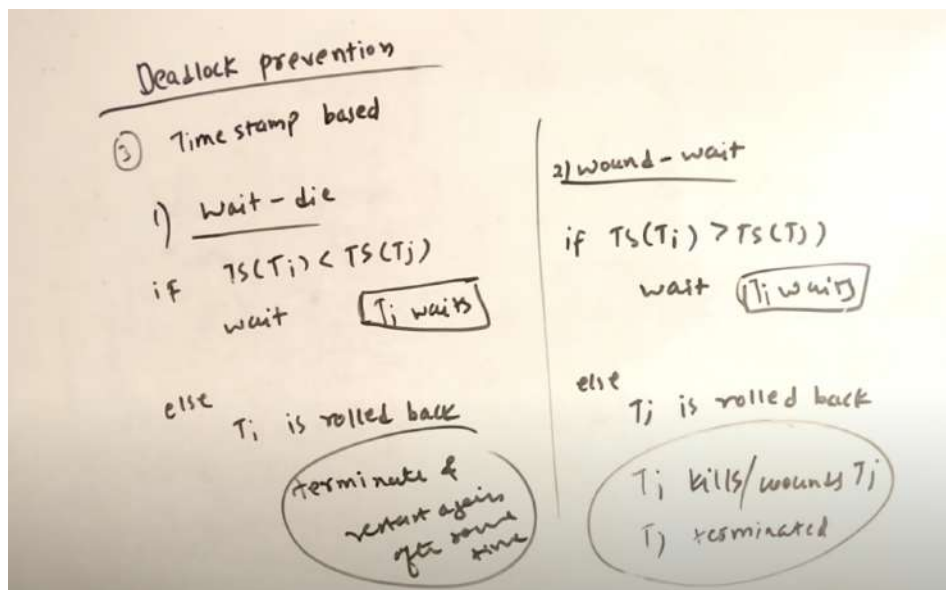 Deadlock prevention
③ Timestamp based
1) wait-die
if TS(Ti) < TS(Tj)
wait Ti waits
else
Ti is rolled back
terminate &
restart again
after some
time
2) wound-wait
if TS(Ti) > TS(Tj)
wait Ti waits
else
Tj is rolled back
Ti kills/wounds Tj
Tj terminated